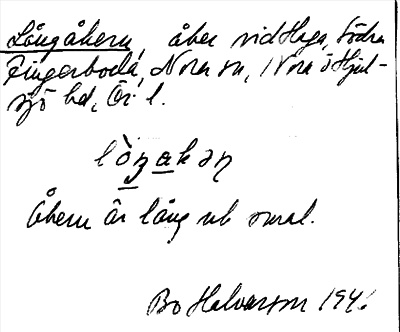 Långåkern, åker vid Haga, Södra
Fingerboda, Nora sn, Nora o Hjul-
sjö hd, Ör. l.
lòŋakəŋ
Åkern är lång och smal.
Bo Halvarson 194